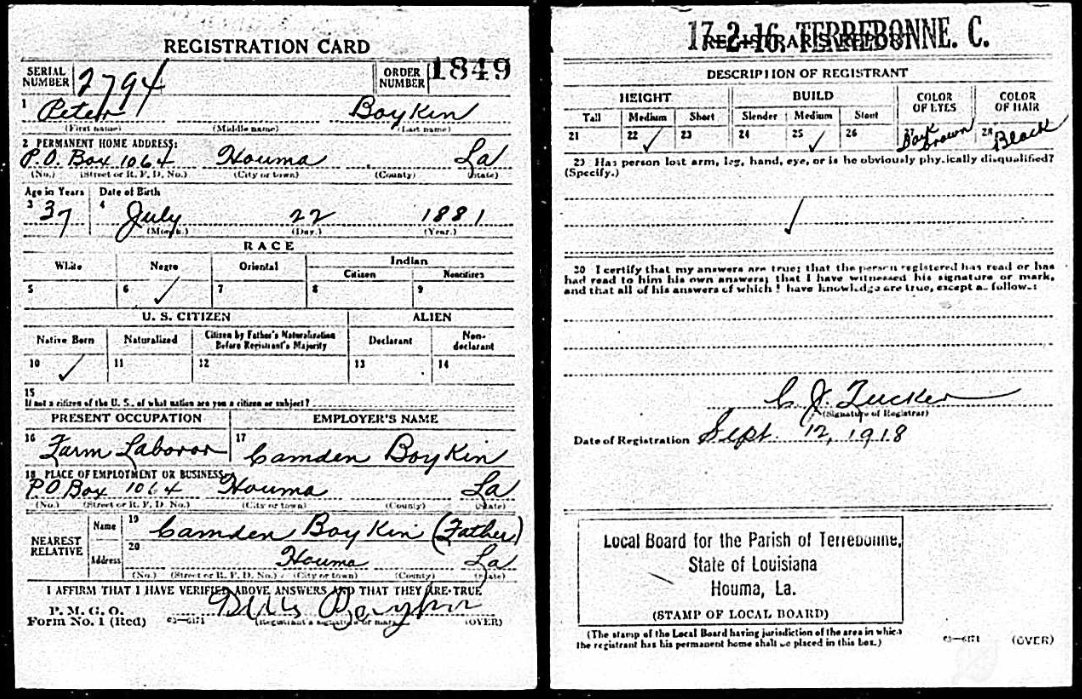 REGISTRATION CARD
SERIAL NUMBER 2794 ORDER NUMBER 1849
1 Peter Boykin
(First name) (Middle name) (Last name)
2 PERMANENT HOME ADDRESS:
P.O. Box 1064 Houma La
(No.) (Street or R. F. D. No.) (City or town) (County) (State)
Age in Years Date of Birth
3 37 4 July 22 1881
(Month.) (Day.) (Year.)
RACE
White Negro Oriental Indian
Citizen Noncitizen
5 6 ✓ 7 8 9
U. S. CITIZEN ALIEN
Native Born Naturalized Citizen by Father's Naturalization Before Registrant's Majority Declarant Non-declarant
10 ✓ 11 12 13 14
15
If not a citizen of the U. S., of what nation are you a citizen or subject?
PRESENT OCCUPATION EMPLOYER'S NAME
16 Farm Laboror 17 Camden Boykin
18 PLACE OF EMPLOYMENT OR BUSINESS:
P.O Box 1064 Houma La
(No.) (Street or R. F. D. No.) (City or town) (County) (State)
NEAREST RELATIVE
Name 19 Camden Boykin (Father)
Address 20 Houma La
(No.) (Street or R. F. D. No.) (City or town) (County) (State)
I AFFIRM THAT I HAVE VERIFIED ABOVE ANSWERS AND THAT THEY ARE TRUE
P. M. G. O.
Form No. 1 (Red) 03-6171 (Registrant's signature or mark) (OVER)
17-2-16 TERREBONNE. C.
REGISTRAR'S REPORT
DESCRIPTION OF REGISTRANT
HEIGHT BUILD COLOR OF EYES COLOR OF HAIR
Tall Medium Short Slender Medium Stout
21 22 ✓ 23 24 25 ✓ 26 Brown 28 Black
29 Has person lost arm, leg, hand, eye, or is he obviously physically disqualified?
(Specify.)
✓
30 I certify that my answers are true; that the person registered has read or has
had read to him his own answers; that I have witnessed his signature or mark,
and that all of his answers of which I have knowledge are true, except as follows:
C. J. Tucker
(Signature of Registrar)
Date of Registration Sept. 12, 1918
Local Board for the Parish of Terrebonne,
State of Louisiana
Houma, La.
(STAMP OF LOCAL BOARD)
(The stamp of the Local Board having jurisdiction of the area in which
the registrant has his permanent home shall be placed in this box.)
03-6171 (OVER)